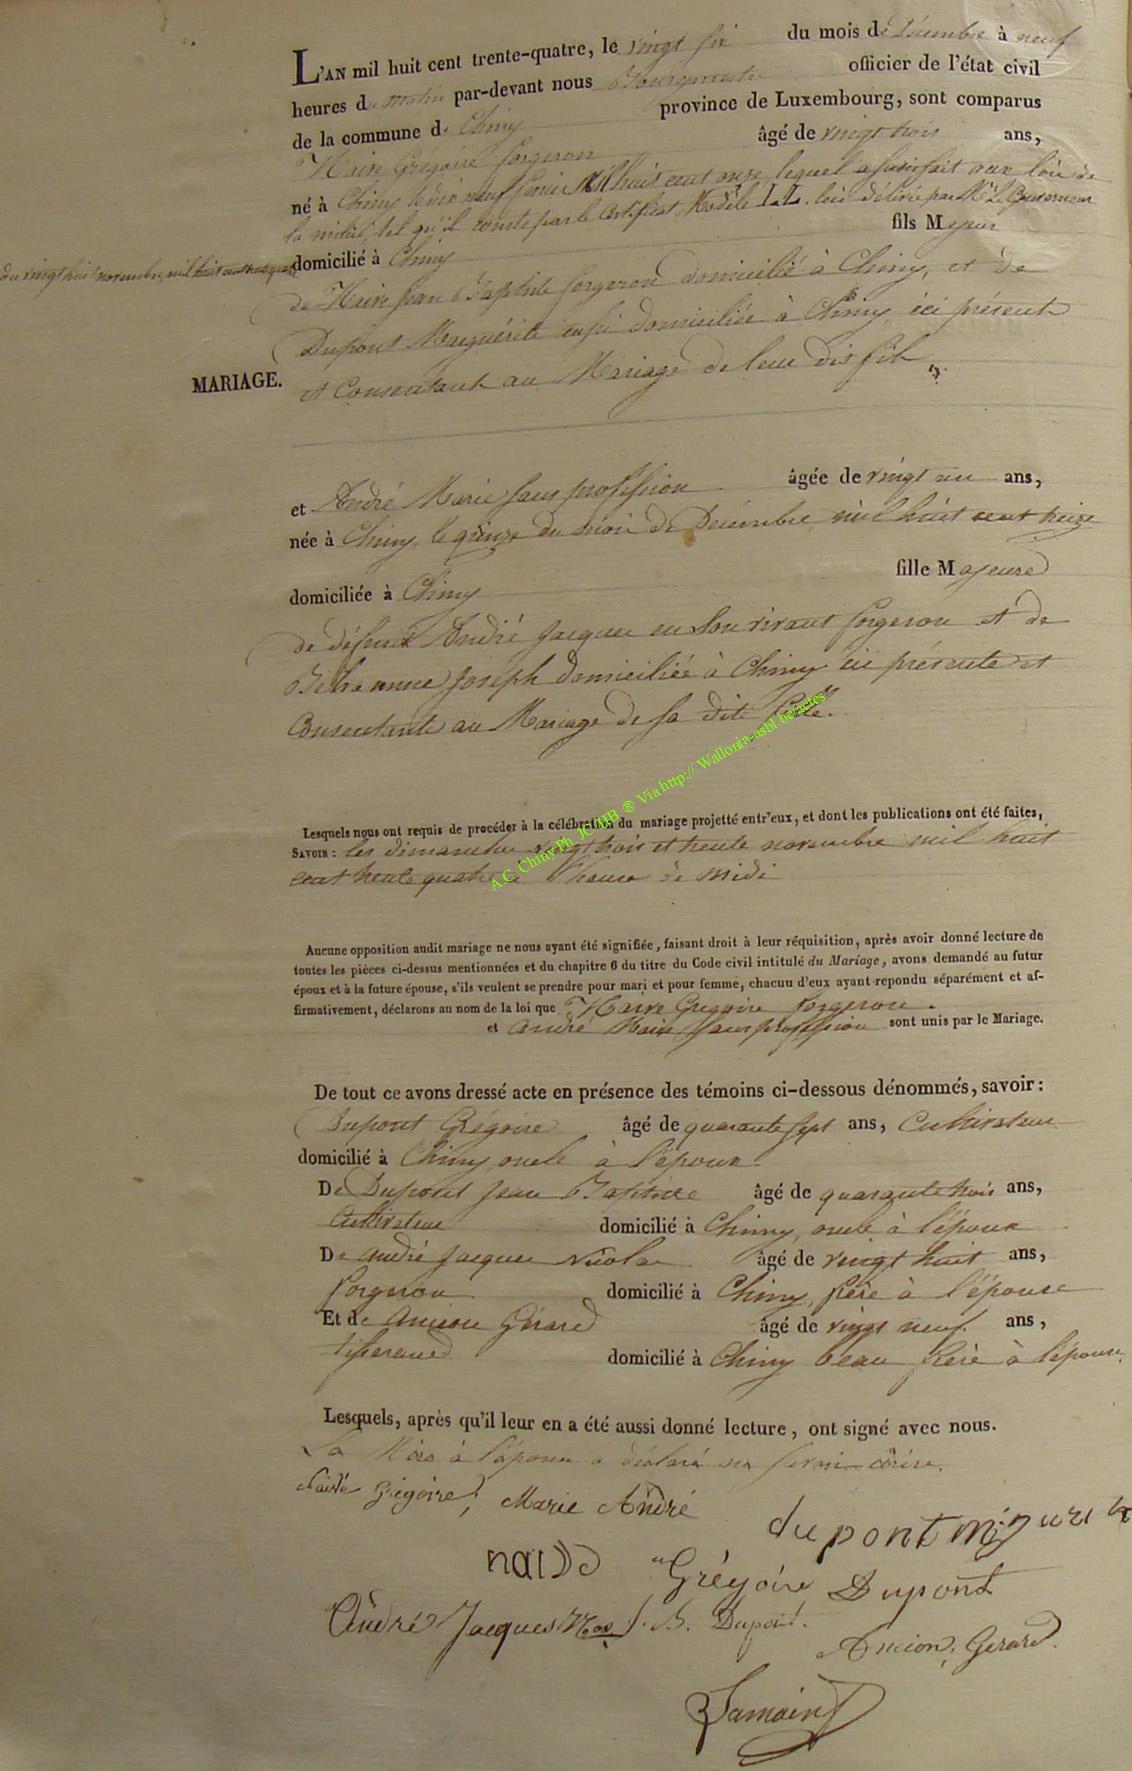 L'AN mil huit cent trente-quatre, le vingt six du mois de Décembre à neuf
heures du matin par-devant nous Bourgmestre officier de l'état civil
de la commune de Chiny province de Luxembourg, sont comparus
Naive Grégoire forgeron âgé de vingt trois ans,
né à Chiny le dix neuf Mil huit cent onze, lequel a satisfait aux lois de
la milice, tel qu'il conste par le Certificat Modèle L.L. lui délivré par Mr Le Gouverneur
fils Majeur
du vingt huit novembre mil huit cent
domicilié à Chiny
de Naive Jean Baptiste forgeron domicilié à Chiny, et de
Dupont Marguérite aussi domiciliée à Chiny ici présents
MARIAGE.
et Consentant au Mariage de leur dit fils
et André Marie sans profession âgée de vingt un ans,
née à Chiny, le quinze du mois de Décembre mil huit cent treize
fille Majeure
domiciliée à Chiny
de défunt André Jacques en son vivant forgeron et de
Joseph domiciliée à Chiny ici présente et
Consentante au Mariage de sa dite fille.
A.C. Chiny Ph. JC HB ® Via http:// Wallonia-asbl.be/actes
Lesquels nous ont requis de procéder à la célébration du mariage projetté entr'eux, et dont les publications ont été faites,
SAVOIR : les dimanches vingt trois et trente novembre mil huit
cent trente quatre à l'heure de midi
Aucune opposition audit mariage ne nous ayant été signifiée, faisant droit à leur réquisition, après avoir donné lecture de
toutes les pièces ci-dessus mentionnées et du chapitre 6 du titre du Code civil intitulé du Mariage, avons demandé au futur
époux et à la future épouse, s'ils veulent se prendre pour mari et pour femme, chacun d'eux ayant repondu séparément et af-
firmativement, déclarons au nom de la loi que Naive Grégoire forgeron.
et André Marie sans profession sont unis par le Mariage.
De tout ce avons dressé acte en présence des témoins ci-dessous dénommés, savoir :
Dupont Grégoire âgé de quarante sept ans, Cultivateur
domicilié à Chiny oncle à l'époux
De Dupont Jean Baptiste âgé de quarante trois ans,
Cultivateur domicilié à Chiny, oncle à l'époux
De André Jacques Nicolas âgé de vingt huit ans,
forgeron domicilié à Chiny, frère à l'épouse
Et de Ancion Gérard âgé de vingt neuf ans,
tisserand domicilié à Chiny beau frère à l'épouse.
Lesquels, après qu'il leur en a été aussi donné lecture, ont signé avec nous.
La Mère à l'épouse a déclaré ne savoir écrire.
grégoire, Marie André
dupont
Grégoire Dupont
André Jacques Nas J. B. Dupont.
Ancion, Gerard.
Lamain